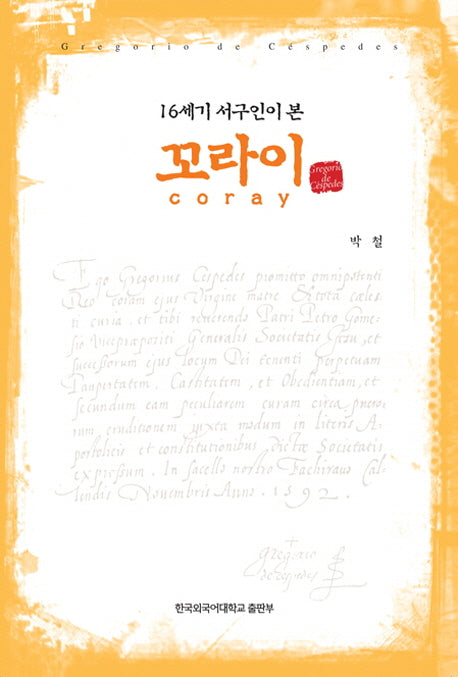 Gregorio de Céspedes
16세기 서구인이 본
꼬라이
coray
Gregorio
de
Céspedes
박 철
Ego Gregorius Cespedes promitto omnipotenti
Deo coram ejus Virgine matre & tota cæles-
ti curia. et tibi reverendo Patri Petro Gome-
sio Vicepræposito Generalis Societatis Jesu, et
successorum ejus locum Dei tenenti perpetuam
Paupertatem. Castitatem, et Obedientiam, et
secundum eam peculiarem curam circa puero-
rum eruditionem juxta modum in literis A-
postolicis et constitutionibus dictæ Societatis
expressum. In sacello nostro Fachiraus Cal-
lendis Novembris Anno. 1592.
gregorio
de cespedes
한국외국어대학교 출판부